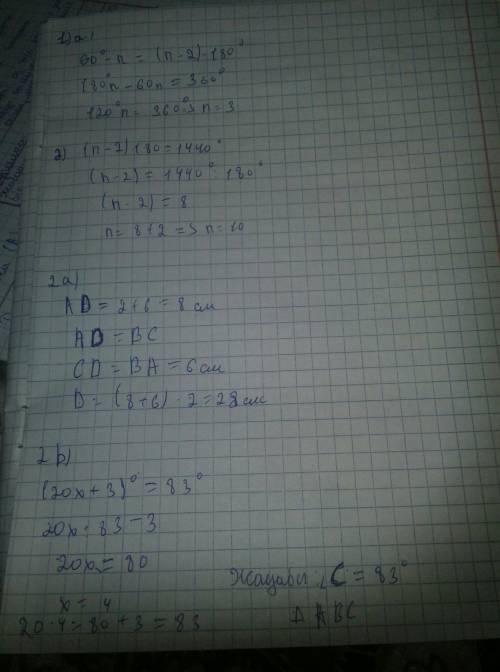 1) a)
60° · n = (n-2) · 180°
180°n - 60n = 360°
120°n = 360° => n = 3
2) (n-2) 180 = 1440°
(n-2) = 1440° : 180°
(n-2) = 8
n = 8+2 => n = 10
2a)
AD = 2+6 = 8 см
AD = BC
CD = BA = 6 см
D = (8+6) · 2 = 28 см
2b)
(20x+3)° = 83°
20x = 83-3
20x = 80
x = 4
20·4 = 80+3 = 83
Жауабы: ∠C = 83°
ABC